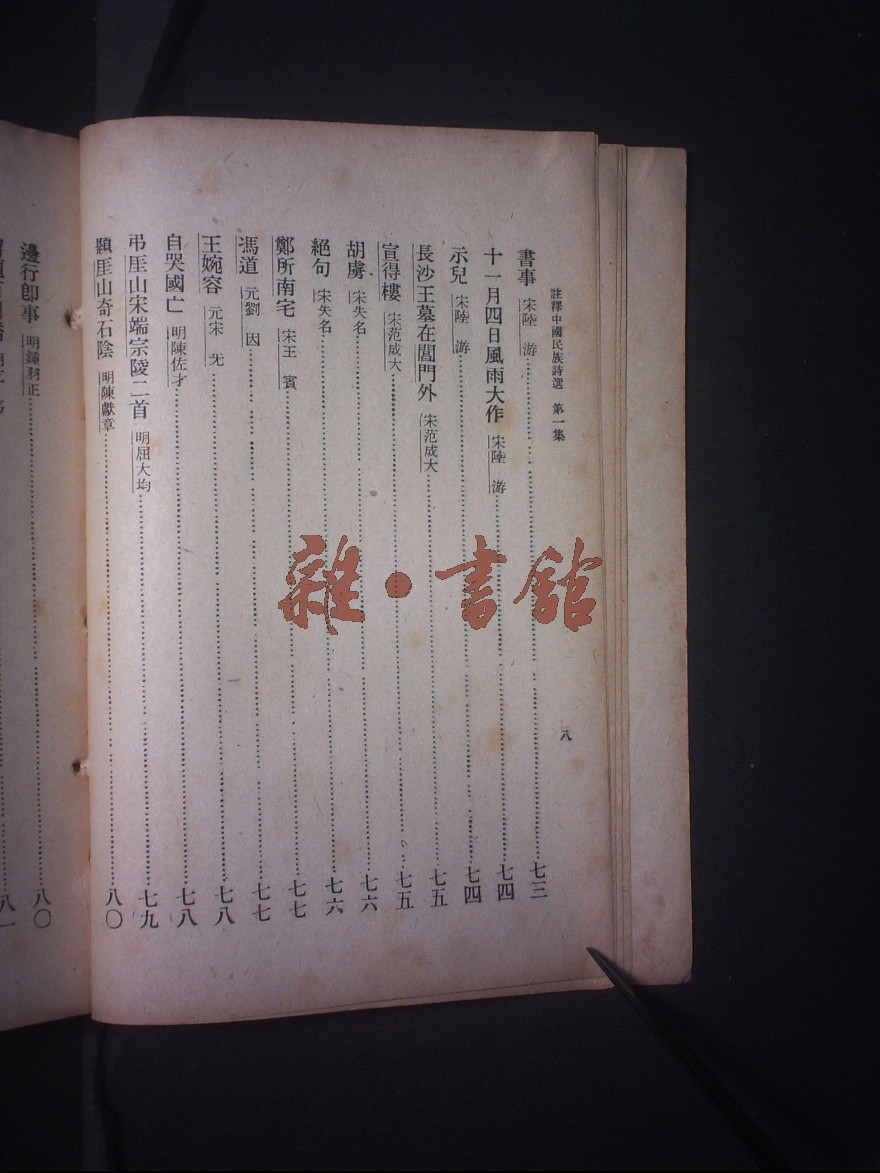 註釋中國民族詩選 第一集
八
書事 宋陸 游 七三
十一月四日風雨大作 宋陸 游 七四
示兒 宋陸 游 七四
長沙王墓在閶門外 宋范成大 七五
宣得樓 宋范成大 七五
胡虜 宋失名 七六
絕句 宋失名 七六
鄭所南宅 宋王 賓 七七
馮道 元劉 因 七七
王婉容 元宋 旡 七八
自哭國亡 明陳佐才 七八
弔厓山宋端宗陵二首 明屈大均 七九
題厓山奇石陰 明陳獻章 八〇
邊行卽事 明鍾羽正 八〇
八一
雜·書館